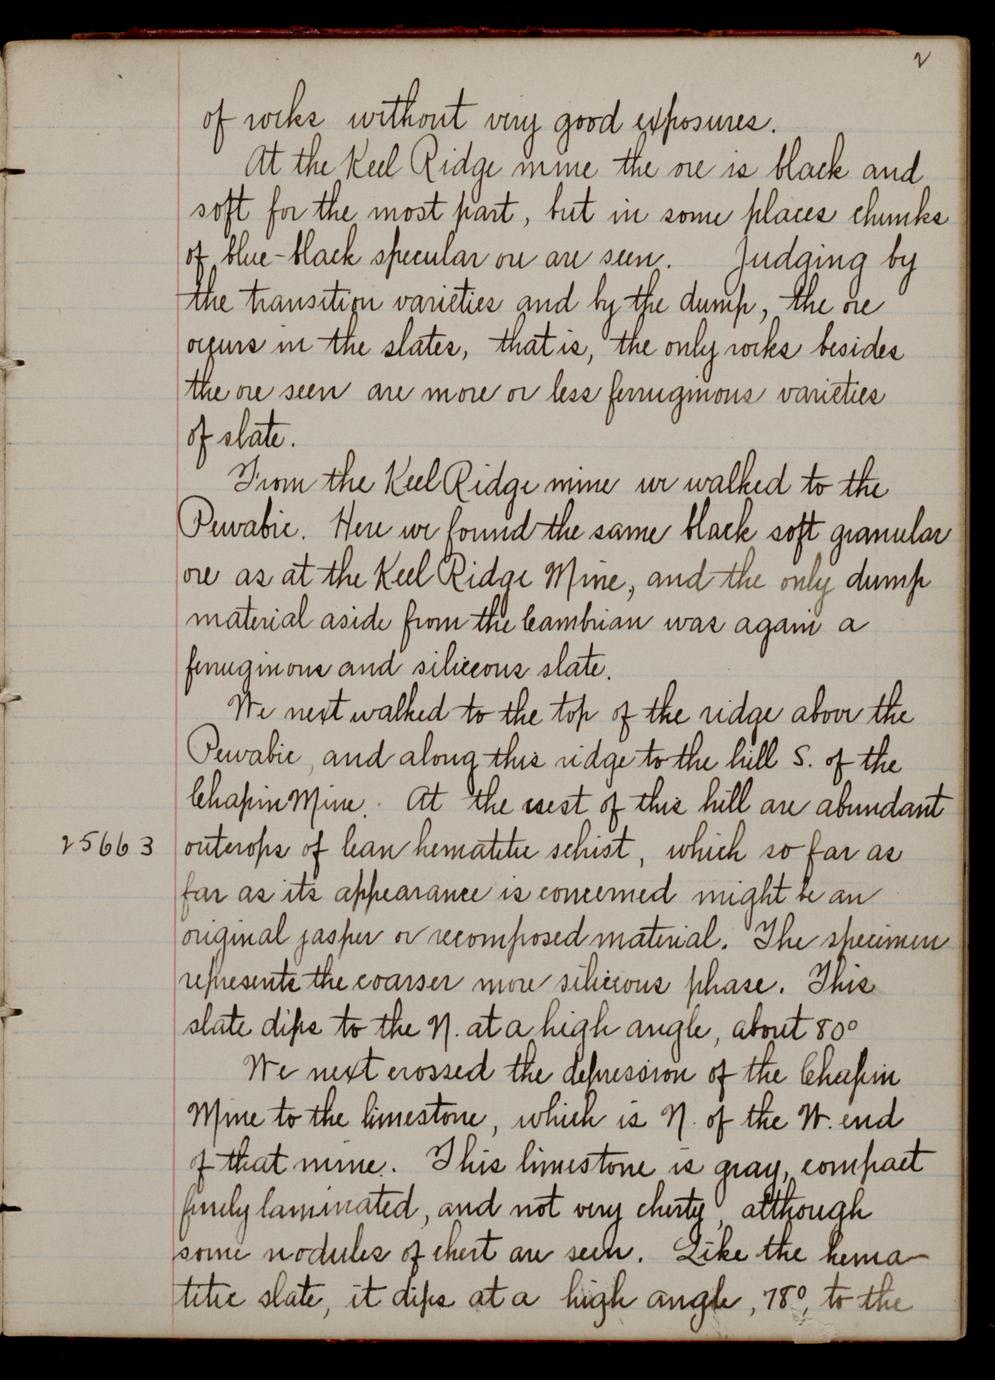 2
of rocks without very good exposures.
At the Keel Ridge mine the ore is black and
soft for the most part, but in some places chunks
of blue-black specular ore are seen. Judging by
the transition varieties and by the dump, the ore
occurs in the slates, that is, the only rocks besides
the ore seen are more or less ferruginous varieties
of slate.
From the Keel Ridge mine we walked to the
Pewabic. Here we found the same black soft granular
ore as at the Keel Ridge Mine, and the only dump
material aside from the Cambrian was again a
ferruginous and siliceous slate.
We next walked to the top of the ridge above the
Pewabic, and along this ridge to the hill S. of the
Chapin Mine. At the crest of this hill are abundant
25663 outcrops of lean hematitic schist, which so far as
far as its appearance is concerned might be an
original jasper or recomposed material. The specimen
represents the coarser more siliceous phase. This
slate dips to the N. at a high angle, about 80°
We next crossed the depression of the Chapin
Mine to the limestone, which is N. of the W. end
of that mine. This limestone is gray, compact
finely laminated, and not very cherty, although
some nodules of chert are seen. Like the hema-
titic slate, it dips at a high angle, 78°, to the